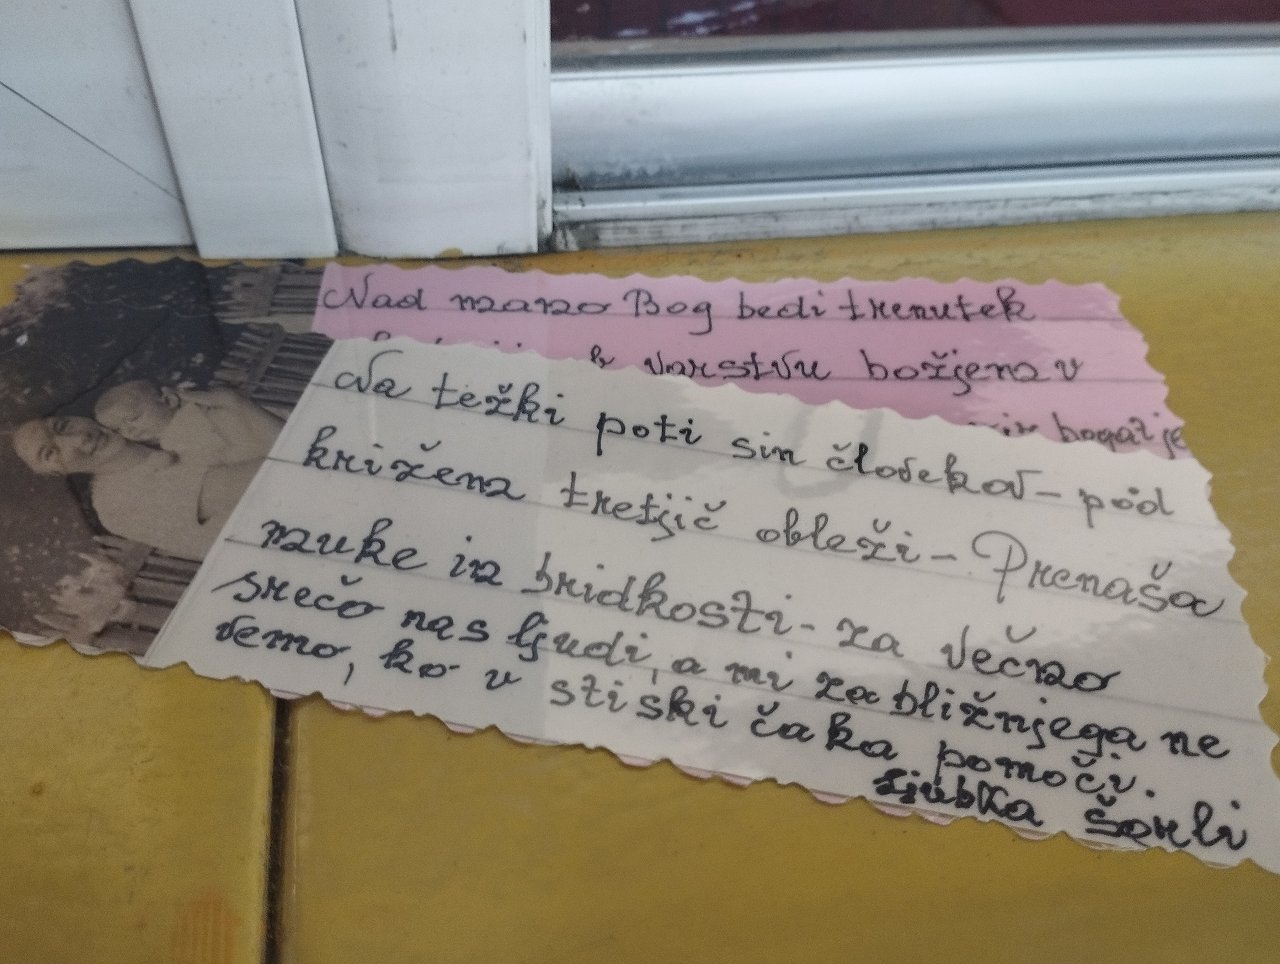 Nad mano Bog bedi trenutek
varstvu božjem v
bogat je
Na težki poti sin človekov - pod
križem tretjič obleži - Prenaša
muke in bridkosti - za večno
srečo nas ljudi, a mi za bližnjega ne
vemo, ko v stiski čaka pomoči.
Ljubka Šorli